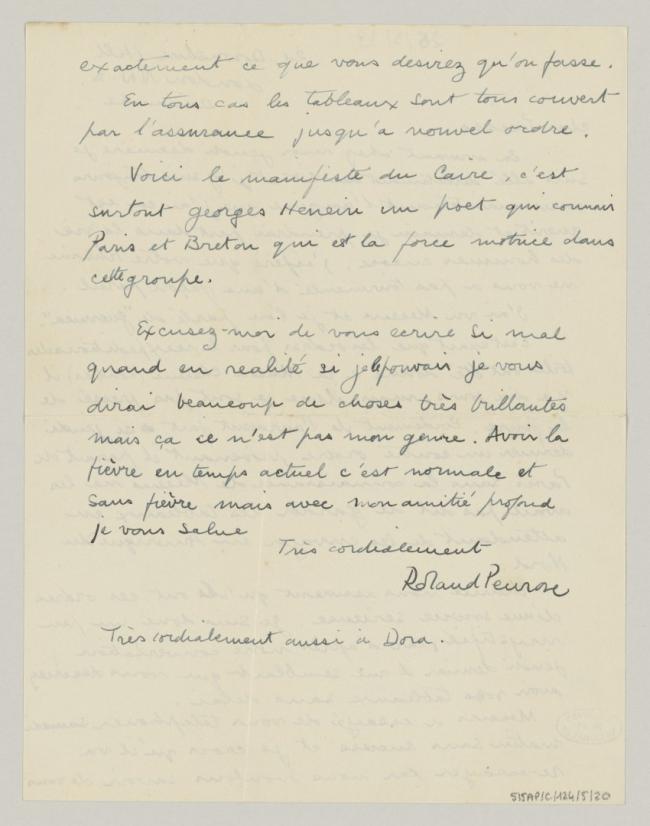 exactement ce que vous desirez qu'on fasse.
En tous cas les tableaux sont tous couvert
par l'assurance jusqu'a nouvel ordre.
Voici le manifeste du Caire, c'est
surtout georges Henein un poet qui connair
Paris et Breton qui est la force motrice dans
cette groupe.
Excusez-moi de vous ecrire si mal
quand en realité si je le pouvais je vous
dirai beaucoup de choses très brillantes
mais ça ce n'est pas mon genre. Avoir la
fièvre en temps actuel c'est normale et
sans fièvre mais avec mon amitié profond
je vous salue
Tres cordialement
Roland Penrose
Très cordialement aussi à Dora.
515AP/C/124/5/20